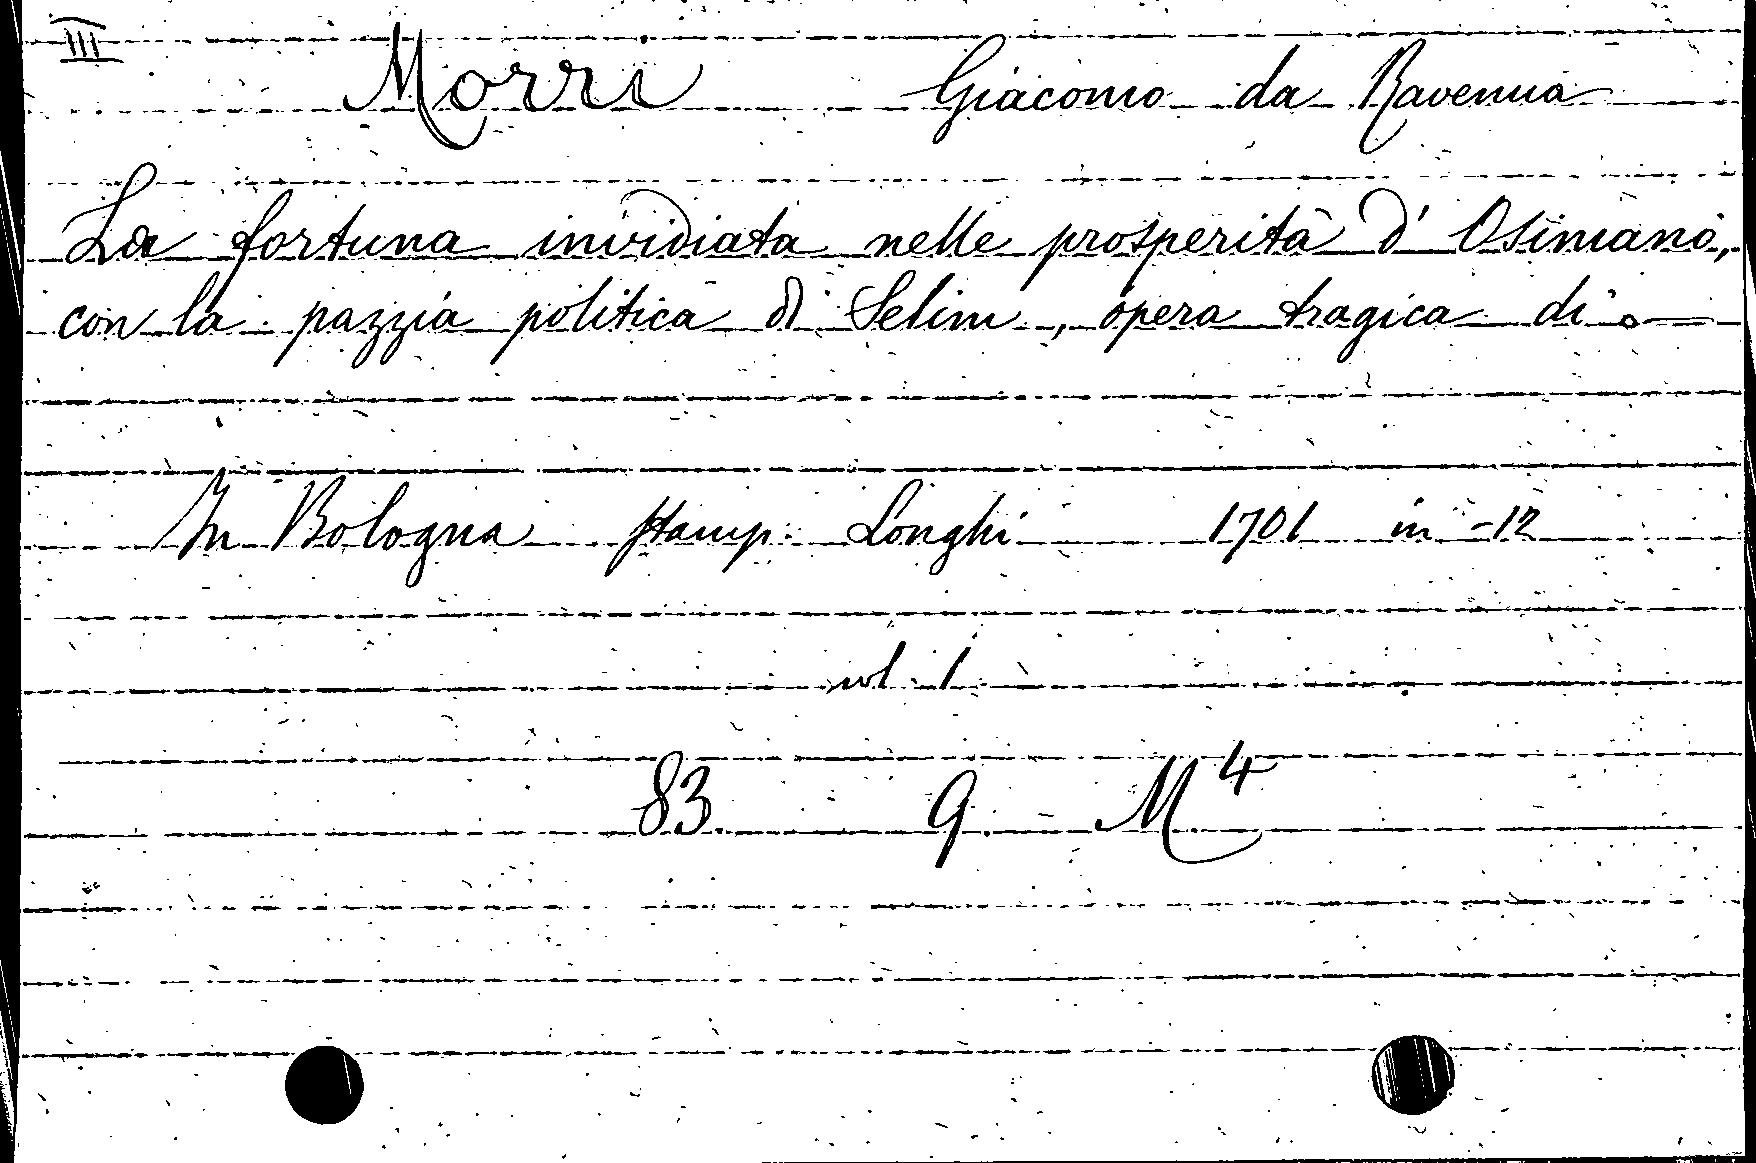 III
Morri Giacomo da Ravenna
La fortuna invidiata nelle prosperità d' Osimano,
con la pazzia politica di Selim, opera tragica di o—
In Bologna stamp. Longhi 1701 in -12
vol. 1
83. 9. M4